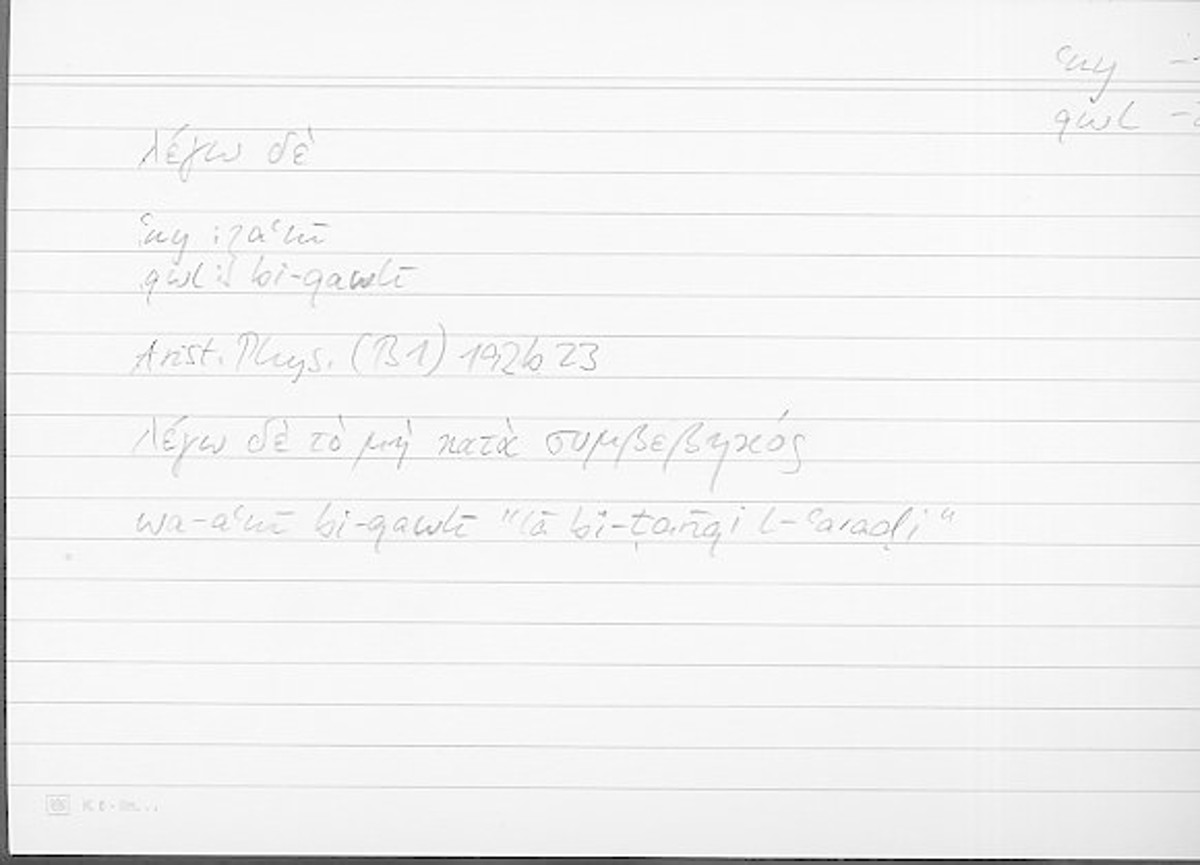 ʿny –
qwl –
λέγω δὲ
ʿny : aʿnī
qwl : bi-qawlī
Arist. Phys. (B 1) 192b 23
λέγω δὲ τὸ μὴ κατὰ συμβεβηκός
wa-aʿnī bi-qawlī "lā bi-ṭarīqi l-ʿaraḍi"